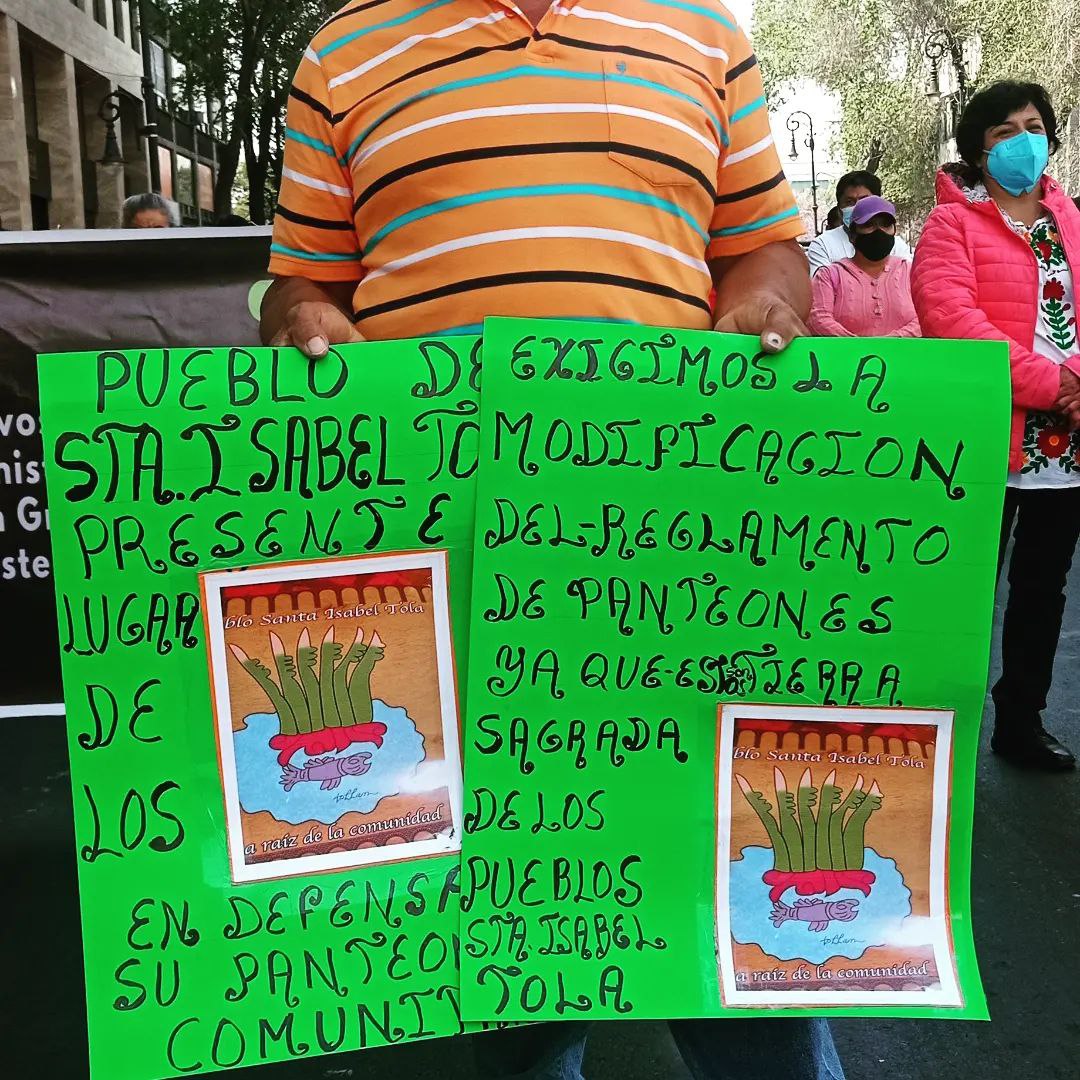 PUEBLO DE
STA. ISABEL TO
PRESENTE
LUGAR
DE
LOS
blo Santa Isabel Tola
tollan
a raíz de la comunidad
EN DEFENSA
SU PANTEO
COMUNIT
EXIGIMOS LA
MODIFICACION
DEL-REGLAMENTO
DE PANTEONES
YA QUE-ES TIERRA
SAGRADA
DE LOS
PUEBLOS
STA. ISABEL
TOLA
blo Santa Isabel Tola
tollan
a raíz de la comunidad